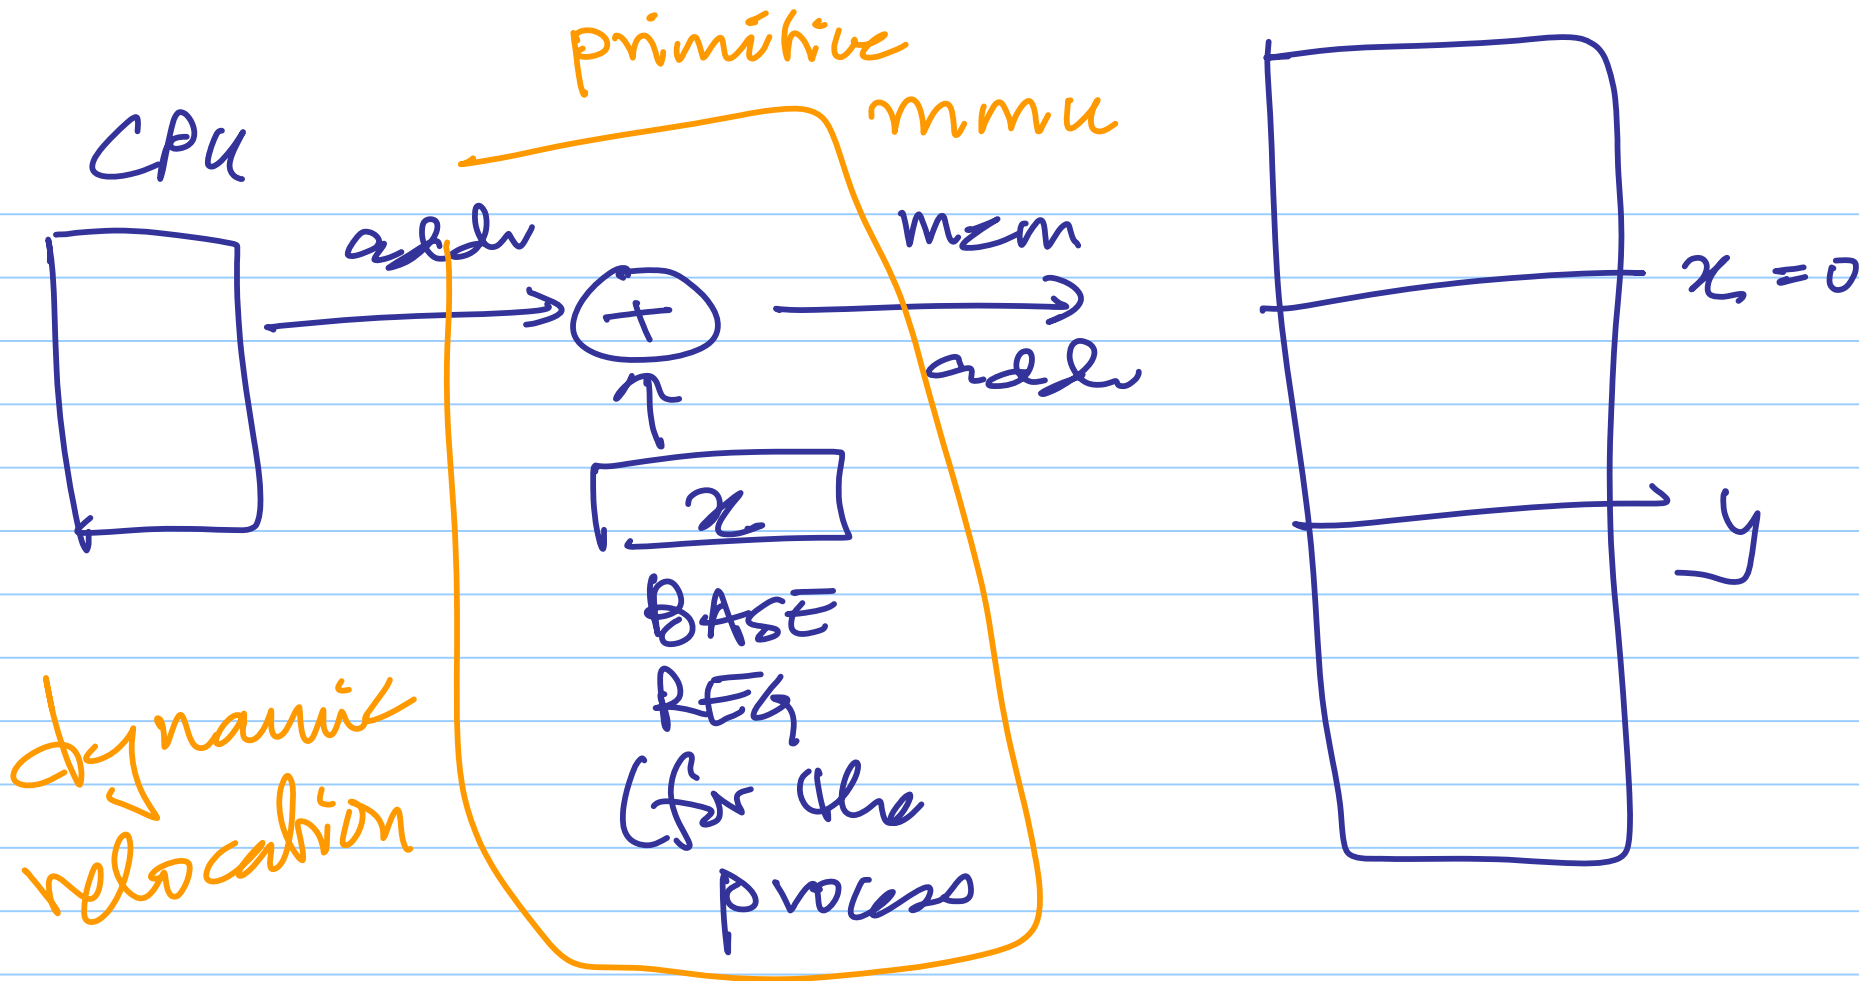 primitive
mmu
CPU
addr
+
mem
addr
x = 0
x
y
BASE
REG
(for the
process
dynamic
relocation